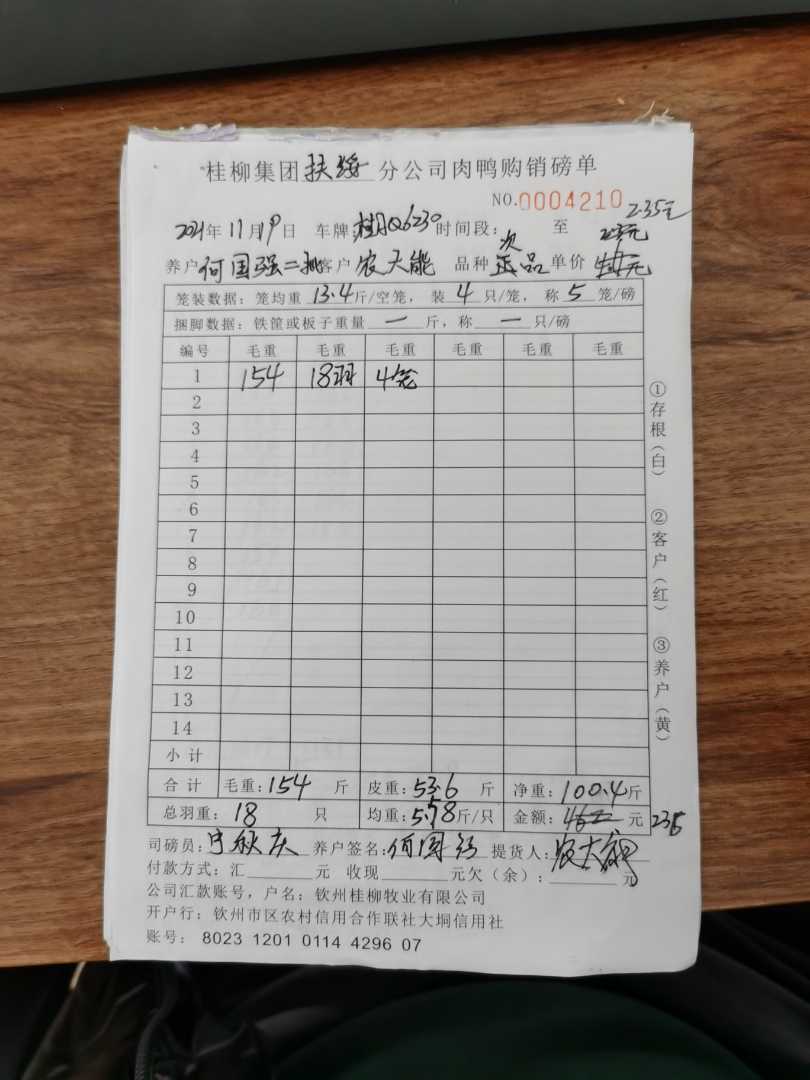 桂柳集团扶绥分公司肉鸭购销磅单
NO.0004210
2.35元
2021年11月19日 车牌:桂 Q6230 时间段: 至
养户何国强二批客户农大能 品种次品 单价
笼装数据: 笼均重 13.4 斤/空笼, 装 4 只/笼, 称 5 笼/磅
捆脚数据: 铁筐或板子重量 一 斤, 称 一 只/磅
编号 毛重 毛重 毛重 毛重 毛重 毛重
1 154 18羽 4笼
2
3
4
5
6
7
8
9
10
11
12
13
14
小计
合计 毛重:154 斤 皮重:53.6 斤 净重:100.4斤
总羽重: 18 只 均重:5.58斤/只 金额: 元 235
司磅员: 养户签名:何国 提货人:农大能
付款方式: 汇 元 收现 元欠(余): 元
公司汇款账号, 户名: 钦州桂柳牧业有限公司
开户行: 钦州市区农村信用合作联社大垌信用社
账号: 8023 1201 0114 4296 07
①存根(白) ②客户(红) ③养户(黄)